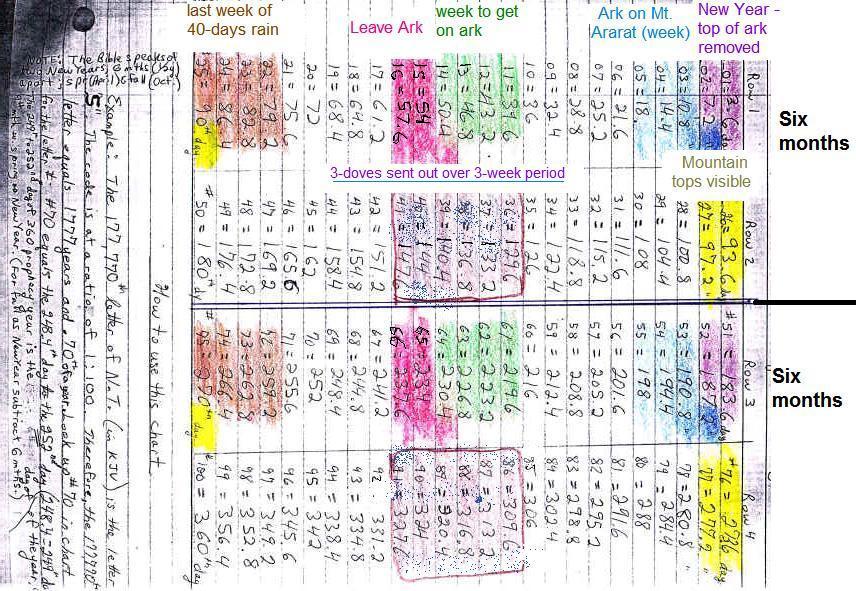 last week of
40-days rain
Leave Ark
week to get
on ark
Ark on Mt.
Ararat (week)
New Year -
top of ark
removed
Six
months
3-doves sent out over 3-week period
Mountain
tops visible
Six
months
Row 1 Row 2 Row 3 Row 4
#01 = 3.6 day #26 = 93.6 day #51 = 183.6 day #76 = 273.6 day
02 = 7.2 27 = 97.2 52 = 187.2 77 = 277.2
03 = 10.8 28 = 100.8 53 = 190.8 78 = 280.8
04 = 14.4 29 = 104.4 54 = 194.4 79 = 284.4
05 = 18 30 = 108 55 = 198 80 = 288
06 = 21.6 31 = 111.6 56 = 201.6 81 = 291.6
07 = 25.2 32 = 115.2 57 = 205.2 82 = 295.2
08 = 28.8 33 = 118.8 58 = 208.8 83 = 298.8
09 = 32.4 34 = 122.4 59 = 212.4 84 = 302.4
10 = 36 35 = 126 60 = 216 85 = 306
11 = 39.6 36 = 129.6 61 = 219.6 86 = 309.6
12 = 43.2 37 = 133.2 62 = 223.2 87 = 313.2
13 = 46.8 38 = 136.8 63 = 226.8 88 = 316.8
14 = 50.4 39 = 140.4 64 = 230.4 89 = 320.4
15 = 54 40 = 144 65 = 234 90 = 324
16 = 57.6 41 = 147.6 66 = 237.6 91 = 327.6
17 = 61.2 42 = 151.2 67 = 241.2 92 = 331.2
18 = 64.8 43 = 154.8 68 = 244.8 93 = 334.8
19 = 68.4 44 = 158.4 69 = 248.4 94 = 338.4
20 = 72 45 = 162 70 = 252 95 = 342
21 = 75.6 46 = 165.6 71 = 255.6 96 = 345.6
22 = 79.2 47 = 169.2 72 = 259.2 97 = 349.2
23 = 82.8 48 = 172.8 73 = 262.8 98 = 352.8
24 = 86.4 49 = 176.4 74 = 266.4 99 = 356.4
25 = 90th day #50 = 180th day #75 = 270th day #100 = 360th day
How to use this chart
Example: The 177,770th letter of N.T. (in KJV) is the letter
"S". The code is at a ratio of 1:100. Therefore, the 177,770th
letter equals 1777 years and .70th of a year. Look up #70 in chart
for the letter #. #70 equals the 248.4th day to the 252nd day (248.4 = 249th day
NOTE: The Bible speaks of
two New Years, 6 mths (½ yr)
apart; spr (April) & fall (Oct.)